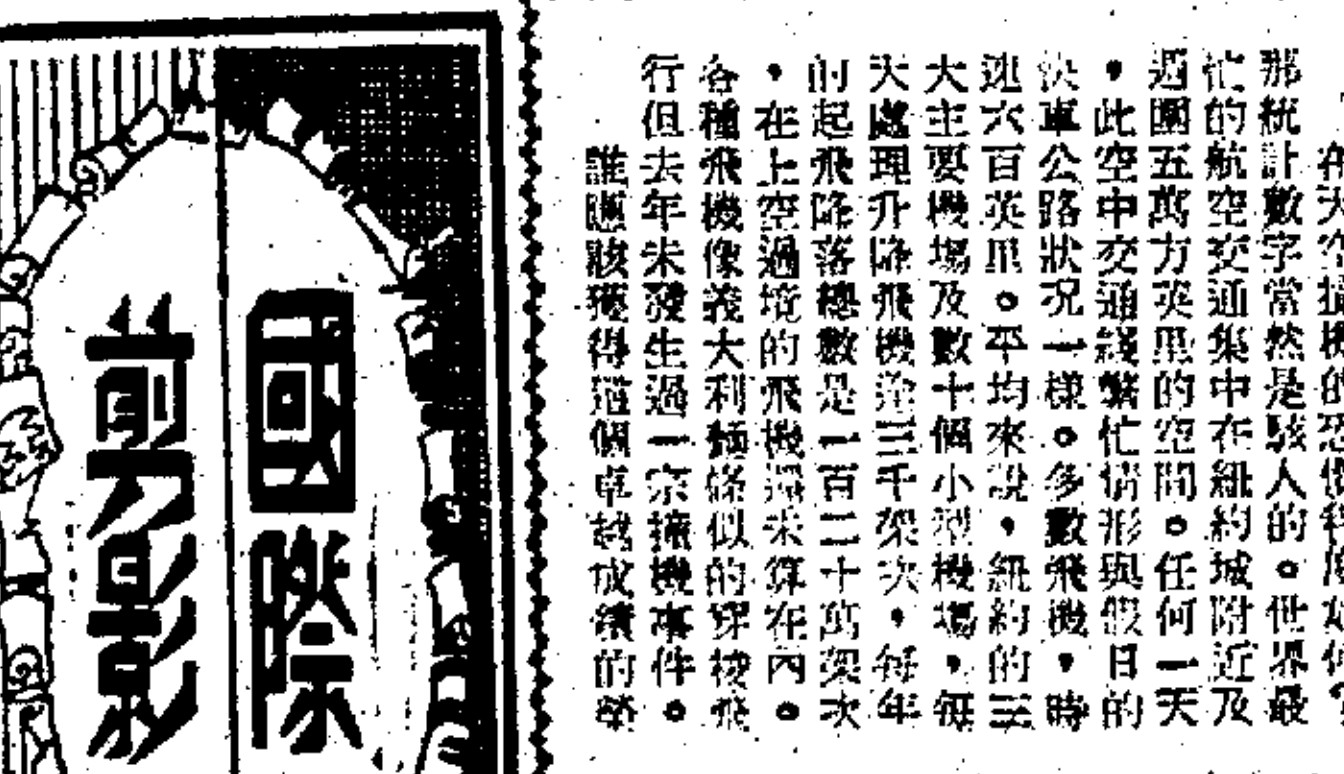 國際
剪影
在天空撞機的恐懼
那統計數字當然是駭人的。世界最
忙的航空交通集中在紐約城附近及
週圍五萬方英里的空間。任何一天
，此空中交通綫繁忙情形與假日的
快車公路狀况一樣。多數飛機，時
速六百英里。平均來說，紐約的三
大主要機場及數十個小型機場，每
天處理升降飛機達三千架次，每年
的起飛降落總數是一百二十萬架次
，在上空過境的飛機還未算在內。
各種飛機像義大利麵條似的穿梭飛
行但去年未發生過一宗撞機事件。
誰應該獲得這個卓越成績的榮